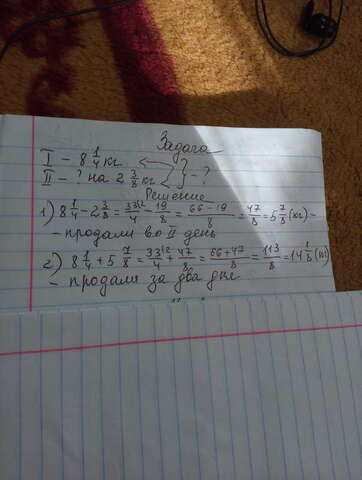 Задача
I - 8 1/4 кг
II - ? на 2 3/8 кг } - ?
Решение
1) 8 1/4 - 2 3/8 = 33/4 - 19/8 = 66-19/8 = 47/8 = 5 7/8 (кг) -
- продали во II день
2) 8 1/4 + 5 7/8 = 33/4 + 47/8 = 66+47/8 = 113/8 = 14 1/8 (кг)
- продали за два дня